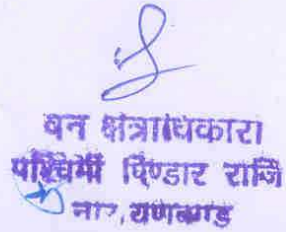 वन क्षेत्राधिकारी
पश्चिमी पिण्डार राजि
नारायणबगड